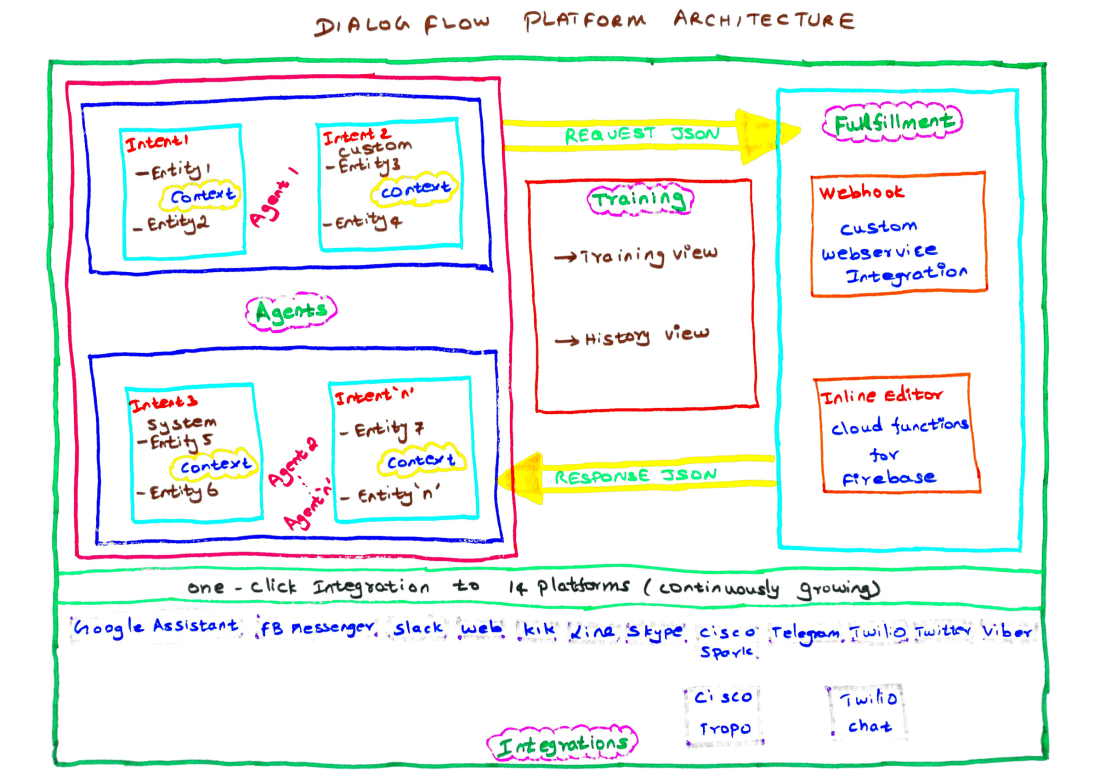 DIALOG FLOW PLATFORM ARCHITECTURE
Intent1
-Entity1
Context
-Entity2
Agent 1
Intent 2
custom
-Entity3
context
-Entity4
Agents
Intent3
system
-Entity5
context
-Entity6
Agent2
Agent'n'
Intent'n'
-Entity7
context
-Entity'n'
REQUEST JSON
Training
→Training view
→History view
RESPONSE JSON
Fulfillment
Webhook
custom
webservice
Integration
Inline Editor
cloud functions
for
firebase
one-click Integration to 14 platforms (continuously growing)
Google Assistant FB Messenger slack web kik Line Skype cisco Telegram Twilio Twitter Viber
Spark
Cisco Twilio
Tropo chat
Integrations